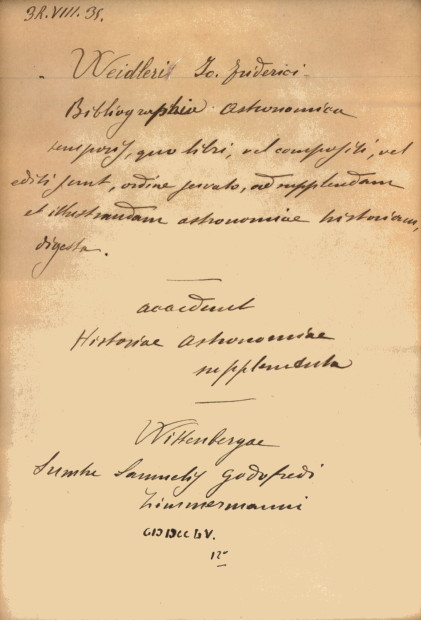 32.VIII.31.
Weidleri Io. Friderici
Bibliographia astronomica
temporis, quo libri, vel compositi, vel
editi sunt, ordine servato, ad supplendam
et illustrandam astronomiae historiam,
digesta.
accedunt
Historiae astronomiae
supplementa
Wittenbergae
Sumtu Samuelis Godofredi
Zimmermanni
CIƆIƆCCLV.
12°